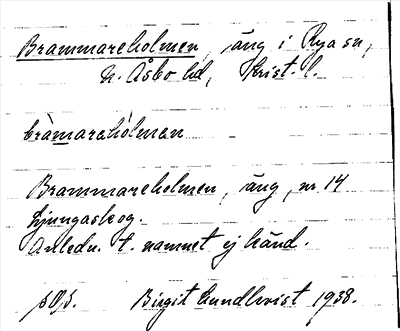 Brammareholmen, äng i Rya sn,
N. Åsbo hd, Krist. l.
bràmarehólmen
Brammareholmen, äng, nr 14
Ljungaskog.
Anledn. t. namnet ej känd.
Birgit Lundkvist 1938.